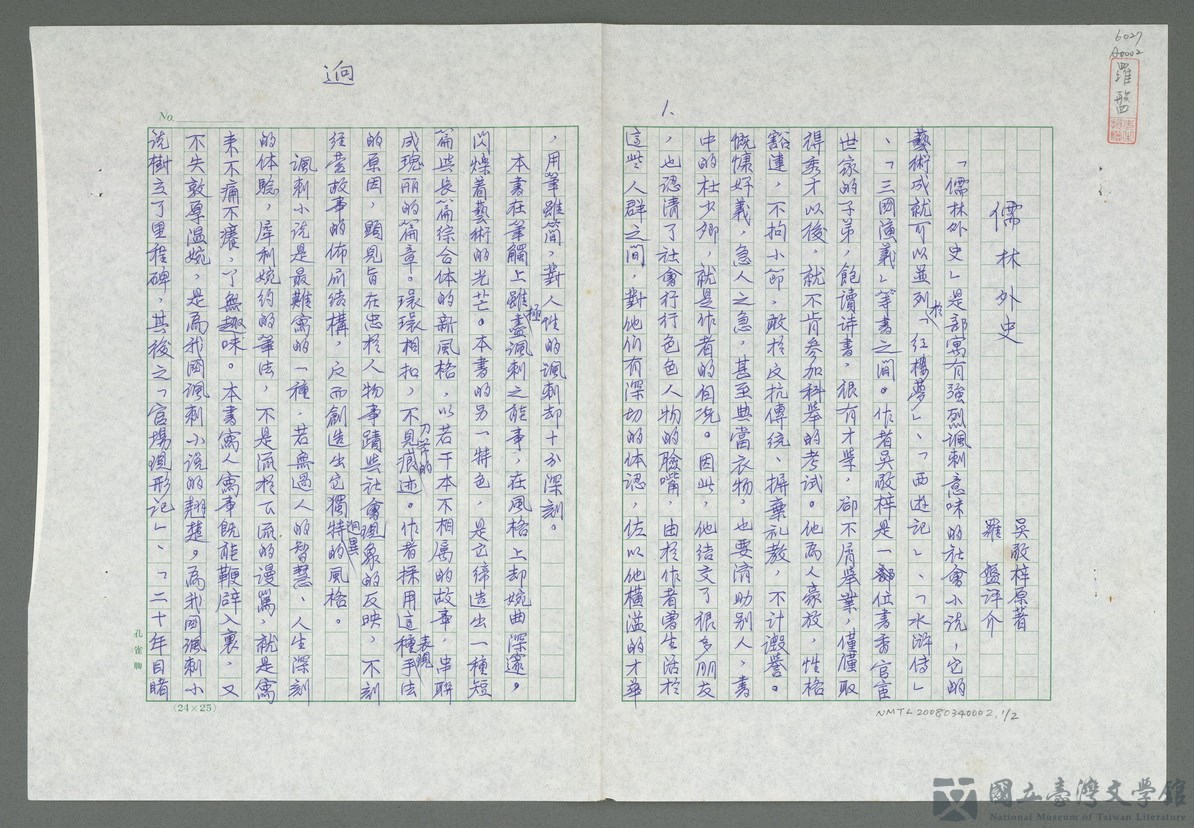 6027
A0002
羅盤
1.
儒林外史
吳敬梓原著
羅盤評介
「儒林外史」是部寓有強烈諷刺意味的社會小說，它的
藝術成就可以並列於「紅樓夢」、「西遊記」、「水滸傳」
、「三國演義」等書之間。作者吳敬梓是一位書香官宦
世家的子弟，飽讀詩書，很有才學，卻不屑舉業，僅僅取
得秀才以後，就不肯參加科舉的考試。他為人豪放，性格
豁達，不拘小節，敢於反抗傳統、摒棄礼教，不計譭譽。
慨慷好義，急人之急，甚至典當衣物，也要濟助別人，書
中的杜少卿，就是作者的自况。因此，他结交了很多朋友
，也認清了社會行行色色人物的臉嘴，由於作者曾生活於
這些人群之间，對他们有深切的体認，佐以他橫溢的才華
，用筆雖简，對人性的諷刺却十分深刻。
本書在筆觸上雖極盡諷刺之能事，在風格上却婉曲深邃。
閃爍着藝術的光芒。本書的另一特色，是它締造出一種短
篇与長篇综合体的新風格，以若干本不相属的故事，串聯
成瑰丽的篇章。環環相扣，不見刀斧的痕迹。作者採用這種表現手法
的原因，顯見旨在忠於人物事蹟与社會現象的反映，不刻
经营故事的佈局结構，反而創造出它獨特的迥異風格。
諷刺小说是最難寫的一種，若無過人的智慧、人生深刻
的体驗，犀利婉约的筆法，不是流於下流的謾罵，就是寫
来不痛不癢，了無趣味。本書寓人寓事既能鞭辟入裏，又
不失敦厚温婉，是為我國諷刺小说的翹楚。為我國諷刺小
说樹立了里程碑，其後之「官場現形記」、「二十年目睹
迥
No.
孔雀牌
(24×25)
NMTL20080340002,1/2
國立臺灣文學館
National Museum of Taiwan Literature